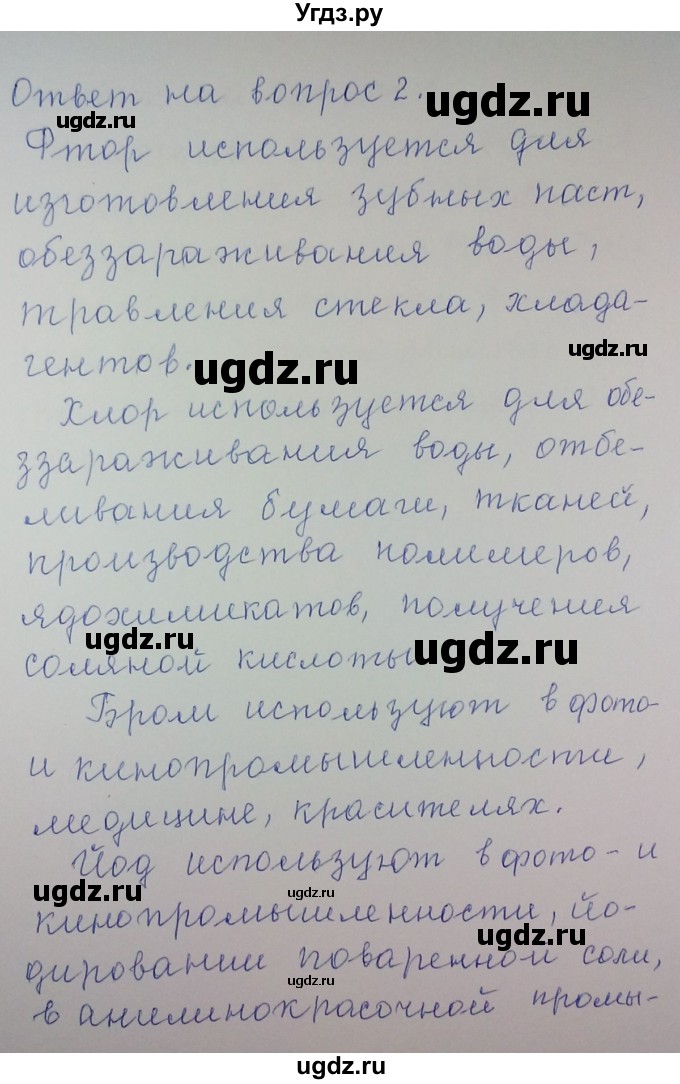 Угдз.ру
Ответ на вопрос 2.
ugdz.ru
ugdz.ru
Фтор используется для
изготовления зубных паст,
обеззараживания воды,
травления стекла, хлада-
ugdz.ru
гентов.
ugdz.ru
Хлор используется для обе-
ззараживания воды, отбе-
ливания бумаги, тканей,
производства полимеров,
ядохимикатов, получения
ugdz.ru
ugdz.ru
соляной кислоты
Бром используют в фото-
и кинопромышленности,
медицине, красителях.
Йод используют в фото- и
ugdz.ru
ugdz.ru
кинопромышленности, йо-
ugdz.ru
дировании поваренной соли,
ugdz.ru
в анилинокрасочной промы-
ugdz.ru